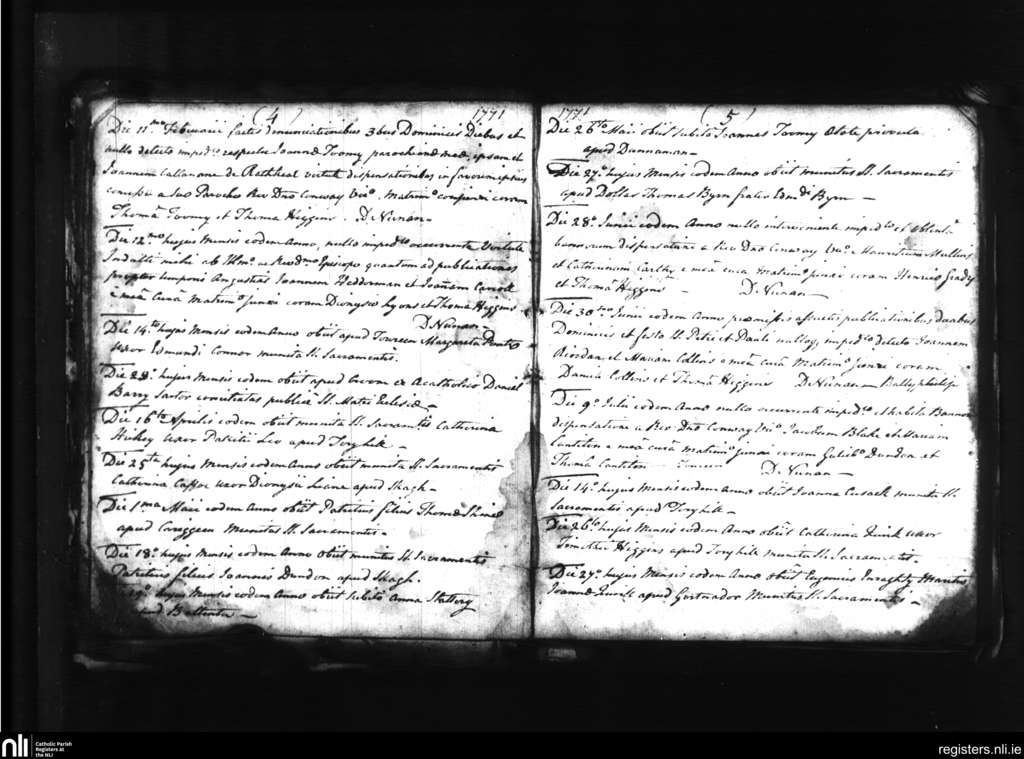 (4) 1771
Die 11.mo Februarii factis denunciationibus 3bus Dominicis Diebus et
nullo detecto imped.to respectu Joannæ Toomy parochianæ meæ, ipsam et
Joannem Callanane de Rathkeal virtute dispensationis in favorem ipsius
concessæ a suo Parocho Rev Dno Conway Vic.o Matrim.o conjunxi coram
Thomâ Toomy et Thoma Higgins. D. Nunan
Die 12.mo hujus Mensis eodem Anno, nullo imped.to occurrente Virtute
Indulti mihi ab Illm.o ac Revd.mo Episcopo quantum ad publicationes
propter temporis Angustias Joannem Hedderman et Joañam Carroll
e meâ Curâ Matrim.o Junxi coram Dionysio Lyons et Thoma Higgins
D. Nunan
Die 14.to hujus Mensis eodem Anno obiit apud Toureen Margareta Ponto
uxor Edmundi Connor munita SS. Sacramentis.
Die 28.o hujus Mensis eodem obiit apud Croom ex Acatholico Daniel
Barry Sartor conciliatus publicæ St. Matri Ecclesiæ
Die 16to Aprilis eodem obiit munita SS. Sacramtis Catherina
Hickey uxor Patritii Leo apud Toryhill
Die 25ta hujus Mensis eodem Anno obiit munita SS. Sacramentis
Catherina uxor Dionysii apud Skagh
Die 1ma Maii eodem Anno obiit Patritius filius Thomæ
apud Carrigeen Munitus SS. Sacramentis
Die 18.o hujus Mensis eodem Anno obiit munitus SS. Sacramentis
Patritius filius Joannis Dundon apud Skagh.
19.o hujus Mensis eodem Anno obiit subito Anna Slattery
apud
1771 (5)
Die 26ta Maii obiit subito Joannes Toomy
apud Dunnaman
Die 27.o hujus Mensis eodem Anno obiit munitus SS. Sacramentis
apud Dollas Thomas Byrn frater Edm.di Byrn
Die 28.o Junii eodem Anno nullo interveniente imped.to et obtentâ
bannorum dispensatione a Rev Dno Conway Vic.o Mauritium Mullins
et Catherinam Carthy e meâ curâ matrim.o junxi coram Henrico Grady
et Thomâ Higgins D. Nunan
Die 30.mo Junii eodem Anno præmissis assuetis publicationibus duabus
Dominicis et festo SS. Petri et Pauli nulloq. imped.to detecto Joannem
Riordan et Mariam Collins e meâ curâ Matrim.o Junxi coram
Collins et Thomâ Higgins D. Nunan Ballyphilip
Die 9.o Julii eodem Anno nullo occurrente imped.to et habita Bannor.
dispensatione a Rev Dno Conway Vic.o Jacobum Blake et Mariam
Cantlon e meâ curâ matrim.o junxi coram Dundon et
Thomâ Cantlon D. Nunan
Die 14.o hujus Mensis eodem Anno obiit Joanna Cusack munita SS.
Sacramentis apud Toryhill
Die 26.o hujus Mensis eodem Anno obiit Catherina Quirk uxor
Timothei Higgins apud Toryhill munita SS. Sacramentis
Die 27.o hujus Mensis eodem Anno obiit Eugenius Inraghty Maritus
Joannæ Quirk apud Munitus SS. Sacramentis
nli
Catholic Parish
Registers at
the NLI
registers.nli.ie